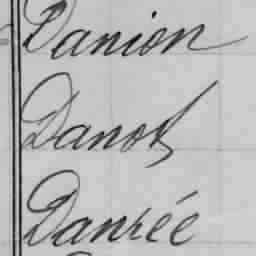 Danion
Danot
Danrée